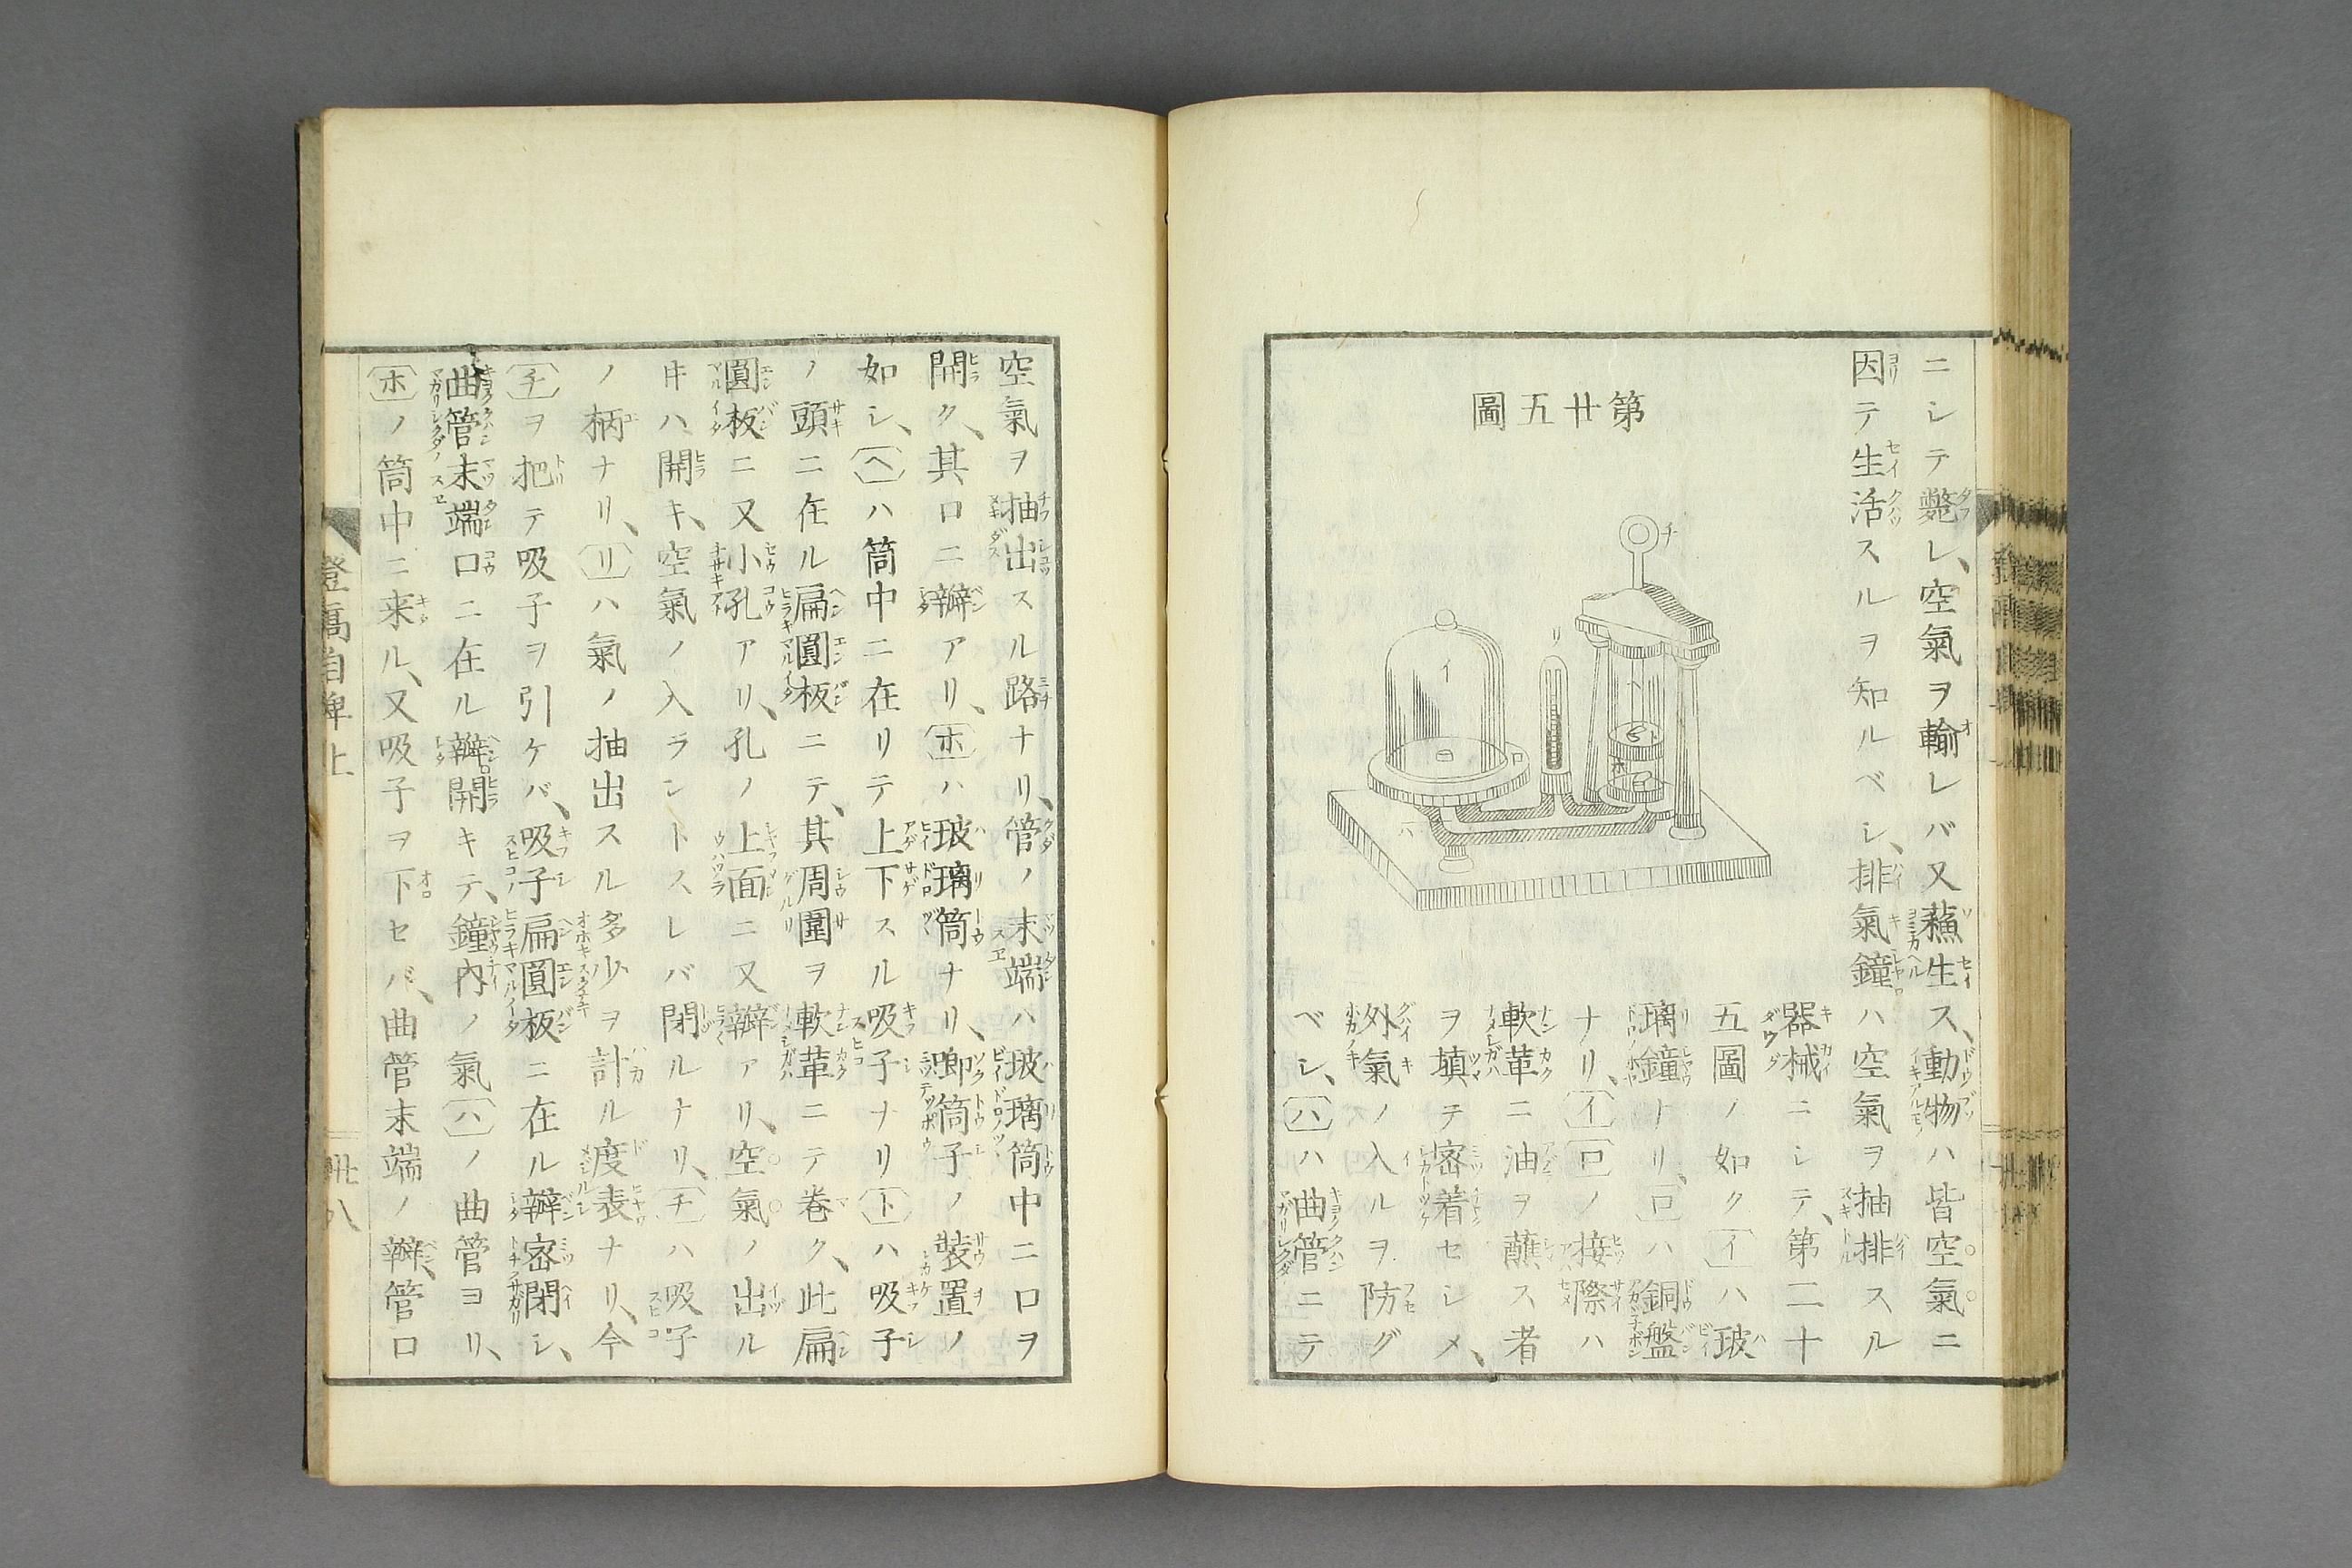 ニシテ斃レ、空氣ヲ輸レバ又蘓生ス、動物ハ皆空氣ニ
因テ生活スルヲ知ルベシ、排氣鐘ハ空氣ヲ抽排スル
第廿五圖
器械ニシテ、第二十
五圖ノ如ク〔イ〕ハ玻
璃鐘ナリ、〔ロ〕ハ銅盤
ナリ、〔イ〕〔ロ〕ノ接際ハ
軟革ニ油ヲ蘸ス者
ヲ塡テ密着セシメ、
外氣ノ入ルヲ防グ
ベシ、〔ハ〕ハ曲管ニテ
空氣ヲ抽出スル路ナリ、管ノ末端ハ玻璃筒中ニ口ヲ
開ク、其口ニ瓣アリ、〔ホ〕ハ玻璃筒ナリ、喞筒子ノ裝置ノ
如シ、〔ヘ〕ハ筒中ニ在リテ上下スル吸子ナリ〔ト〕ハ吸子
ノ頭ニ在ル扁圓板ニテ、其周圍ヲ軟革ニテ卷ク、此扁
圓板ニ又小孔アリ、孔ノ上面ニ又瓣アリ、空氣ノ出ル
ヰハ開キ、空氣ノ入ラントスレバ閉ルナリ、〔チ〕ハ吸子
ノ柄ナリ、〔リ〕ハ氣ノ抽出スル多少ヲ計ル度表ナリ、今
〔チ〕ヲ把テ吸子ヲ引ケバ、吸子扁圓板ニ在ル瓣密閉シ、
曲管末端口ニ在ル瓣開キテ、鐘內ノ氣〔ハ〕ノ曲管ヨリ、
〔ホ〕ノ筒中ニ来ル、又吸子ヲ下セバ、曲管末端ノ瓣、管口
登高自卑上
卅八